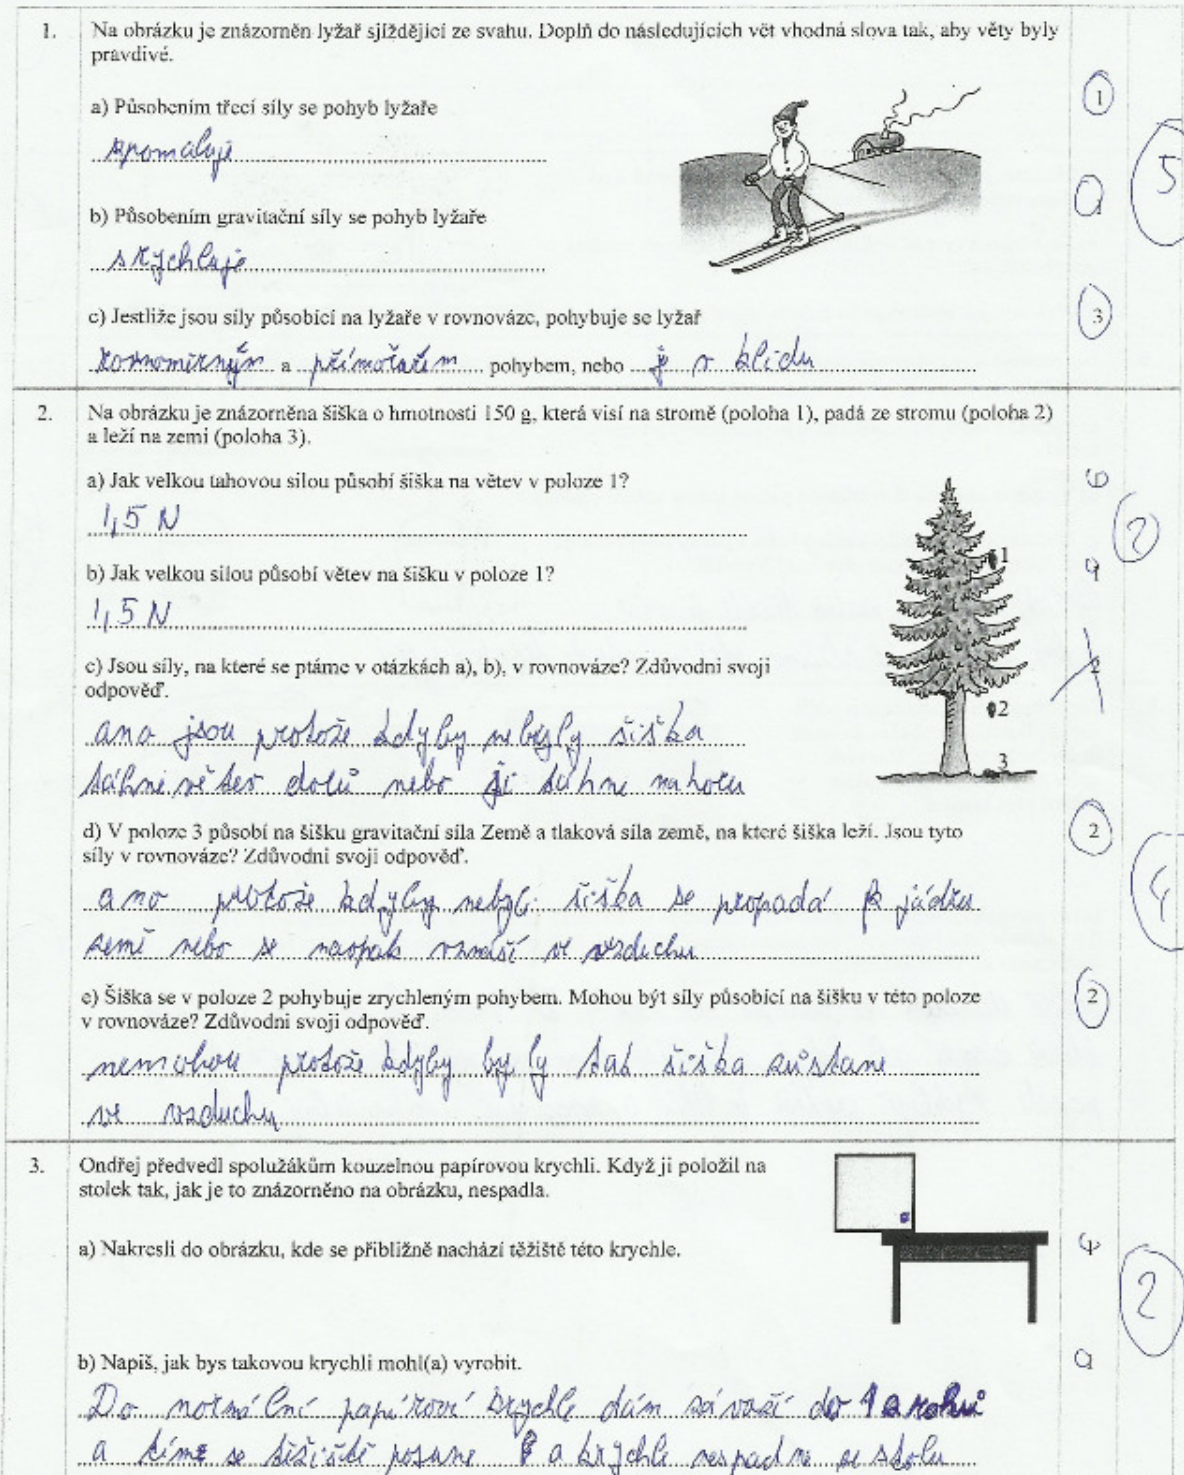 1. Na obrázku je znázorněn lyžař sjíždějící ze svahu. Doplň do následujících vět vhodná slova tak, aby věty byly
pravdivé.
a) Působením třecí síly se pohyb lyžaře
zpomaluje
1
5
b) Působením gravitační síly se pohyb lyžaře
zrychluje
1
c) Jestliže jsou síly působící na lyžaře v rovnováze, pohybuje se lyžař
3
rovnoměrným a přímočarém pohybem, nebo je v klidu
2. Na obrázku je znázorněna šiška o hmotnosti 150 g, která visí na stromě (poloha 1), padá ze stromu (poloha 2)
a leží na zemi (poloha 3).
a) Jak velkou tahovou silou působí šiška na větev v poloze 1?
1,5 N
2
1
b) Jak velkou silou působí větev na šišku v poloze 1?
1,5 N
c) Jsou síly, na které se ptáme v otázkách a), b), v rovnováze? Zdůvodni svoji
odpověď.
2
2
ano jsou protože kdyby nebyly šiška
táhne větev dolů nebo ji táhne nahoru
3
d) V poloze 3 působí na šišku gravitační síla Země a tlaková síla země, na které šiška leží. Jsou tyto
síly v rovnováze? Zdůvodni svoji odpověď.
2
4
ano protože kdyby nebyli šiška se propadá k jádru
země nebo se naopak vznáší ve vzduchu
e) Šiška se v poloze 2 pohybuje zrychleným pohybem. Mohou být síly působící na šišku v této poloze
v rovnováze? Zdůvodni svoji odpověď.
2
nemohou protože kdyby byly tak šiška zůstane
ve vzduchu
3. Ondřej předvedl spolužákům kouzelnou papírovou krychli. Když ji položil na
stolek tak, jak je to znázorněno na obrázku, nespadla.
a) Nakresli do obrázku, kde se přibližně nachází těžiště této krychle.
2
b) Napiš, jak bys takovou krychli mohl(a) vyrobit.
Do normální papírové krychle dám závaží do 1 z rohů
a tíme se těžiště posune a krychle nespadne ze stolu